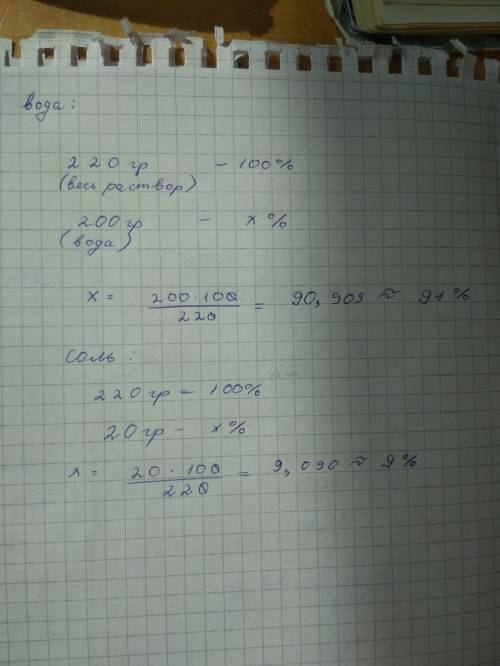 вода:
220 гр - 100%
(весь раствор)
200 гр - x%
(вода)
x = 200 · 100 / 220 = 90,909 ≈ 91%
соль:
220 гр - 100%
20 гр - x%
x = 20 · 100 / 220 = 9,090 ≈ 9%